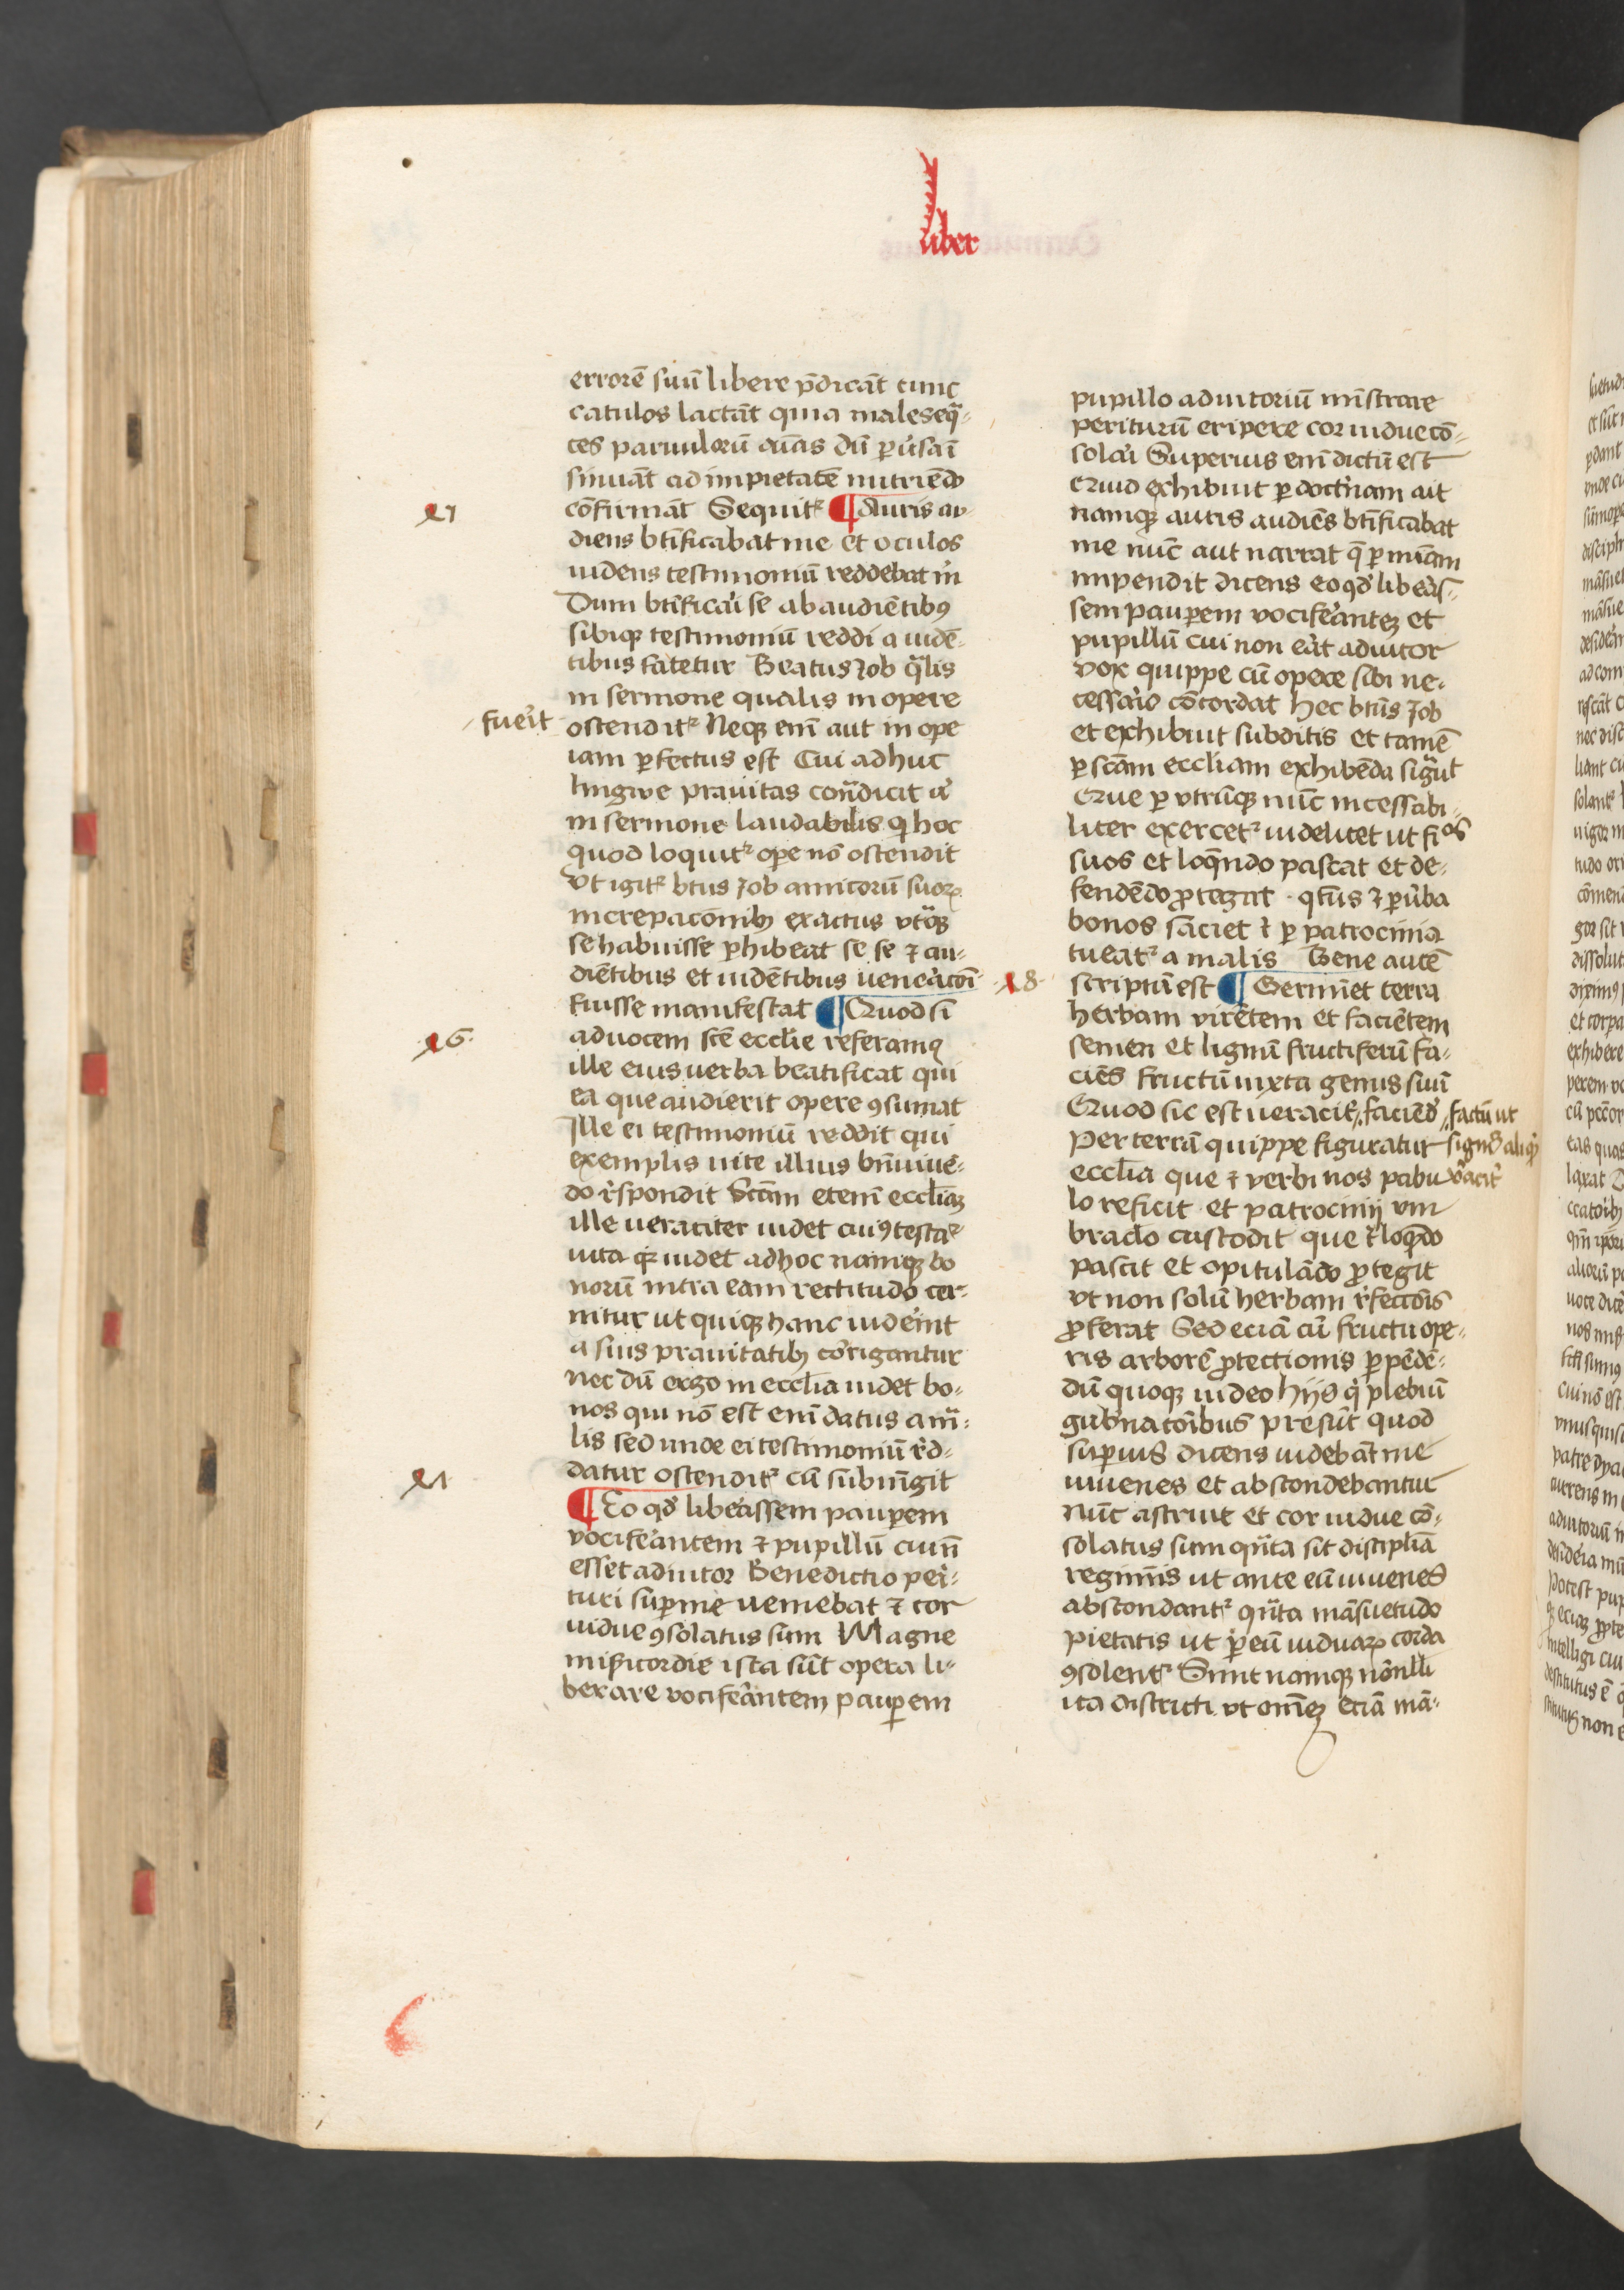 liber
errorē suū libere p̄dicāt tunc
catulos lactāt quia male seqͣ-
ces paruulorū aīas dū ꝑuˢsa ī
sinuāt ad impietatē nutriēdo
cōfirmāt Sequitᷣ ¶ Auris au-
diens btīficabat me et oculos
uidens testimoniū reddebat m̄
Dum btīficaˢi se ab audiētibꝰ
sibiqꝫ testimoniū reddi a uidē-
tibus fatetur Beatus Job qͣlis
in sermone qualis in opere
fueˢit
ostenditᷣ Neqꝫ enī aut in ope
iam ꝑfectus est Cui adhuc
lingwe prauitas cont̄dicit aˢ
in sermone laudabilis qi hoc
quod loquitᷣ oꝑe nō ostendit
Vt igitᷣ btūs Job amicorū suoꝝ
increpacōnibꝫ exactus vtͣqꝫ
se habuisse ꝑhibeat se se ⁊ au-
diētibus et uidētibus ueneˢacōī
fuisse manifestat ¶ Quod si
ad uocem scē ecclīe referamꝰ
ille eius uerba beatificat qui
ea que audierit opere ꝯsumat
Ille ei testimoniū reddit qui
exemplis uite illius bn̄ uiuē-
do rˢspondit Scām etenī ecclīaꝫ
ille ueraciter uidet cuiꝰ testaᷣ
uita qꝛ uidet ad hoc namqꝫ bo
norū intra eam rectitudo cer-
nitur ut quiqꝫ hanc uideˢint
a suis prauitatibꝫ corˢigantur
nec dū ergo in ecclīa uidet bo-
nos qui nō est enīdatus a mͣ-
lis sed unde ei testimoniū rˢd-
datur ostenditᷣ cū subiūgit
¶ Eo qđ libeˢassem pauꝑem
vocifeˢantem ⁊ pupillū cui n̄
esset adiutor Benedictio peri-
turi suꝑ me ueniebat ⁊ cor
uidue ꝯsolatus sum Magne
mīsicordie ista sūt opera li-
berare vocifeˢantem pauꝑem
pupillo adiutoriū mīstrare
periturū eripere cor uidue cō-
solaˢi Superius enī dictū est
Quid exhibuit ꝑ doctˢinam ait
namqꝫ auris audiēs btīficabat
me nūc aut narrat q̄ ꝑ mīam
impendit dicens eo qđ libeˢas-
sem pauꝑem vocifeˢanteꝫ et
pupillū cui non eˢat adiutor
vox quippe cū opere sibi ne-
cessaˢio cōcordat Hec btūs Job
et exhibuit subditis et tamē
ꝑ scām eccliam exhibēda sigͣut
Que ꝑ vtrūqꝫ nūc incessabi-
liter exercetᷣ uidelicet ut fi os
suos et loqͤndo pascat et de-
fendēdo ꝓtegat qͣtūs ⁊ ꝑ uˢba
bonos saciet ⁊ ꝑ patrocinia
tueatᷣ a malis Bene autē
scriptū est ¶ Germīet terra
herbam virētem et faciētem
semen et lignū fructiferū fa-
ciēs fructū iuxta genus suū
Quod sic est ueracitˢ faciēdˢ factū ut
Per terrā quippe figuratur signᵈ aliqͥ
ecclīa que ⁊ verbi nos pabu vˢacitˢ
lo reficit et patrocinij vm
braclo custodit que ⁊ loqͤdo
pascit et opitulādo ꝓtegit
vt non solū herbam rˢfeccōis
ꝓferat Sed eciā cū fructu ope-
ris arborē ꝓtectionis ꝑpēdē-
dū quoqꝫ uideo hijs qi plebiū
gubˢnacōibus presūt quod
suꝑius dicens uidebāt me
iuuenes et abscondebantur
nūc astruit et cor uidue cō-
solatus sum qͣta sit disciplīa
regimīs ut ante eū iuuenes
abscondantᷣ qͣta māsuetudo
pietatis ut ꝑ eū uiduaꝝ corda
ꝯsolentᷣ Sunt namqꝫ nōnlli
ita districti vt omēꝫ eciā mā-